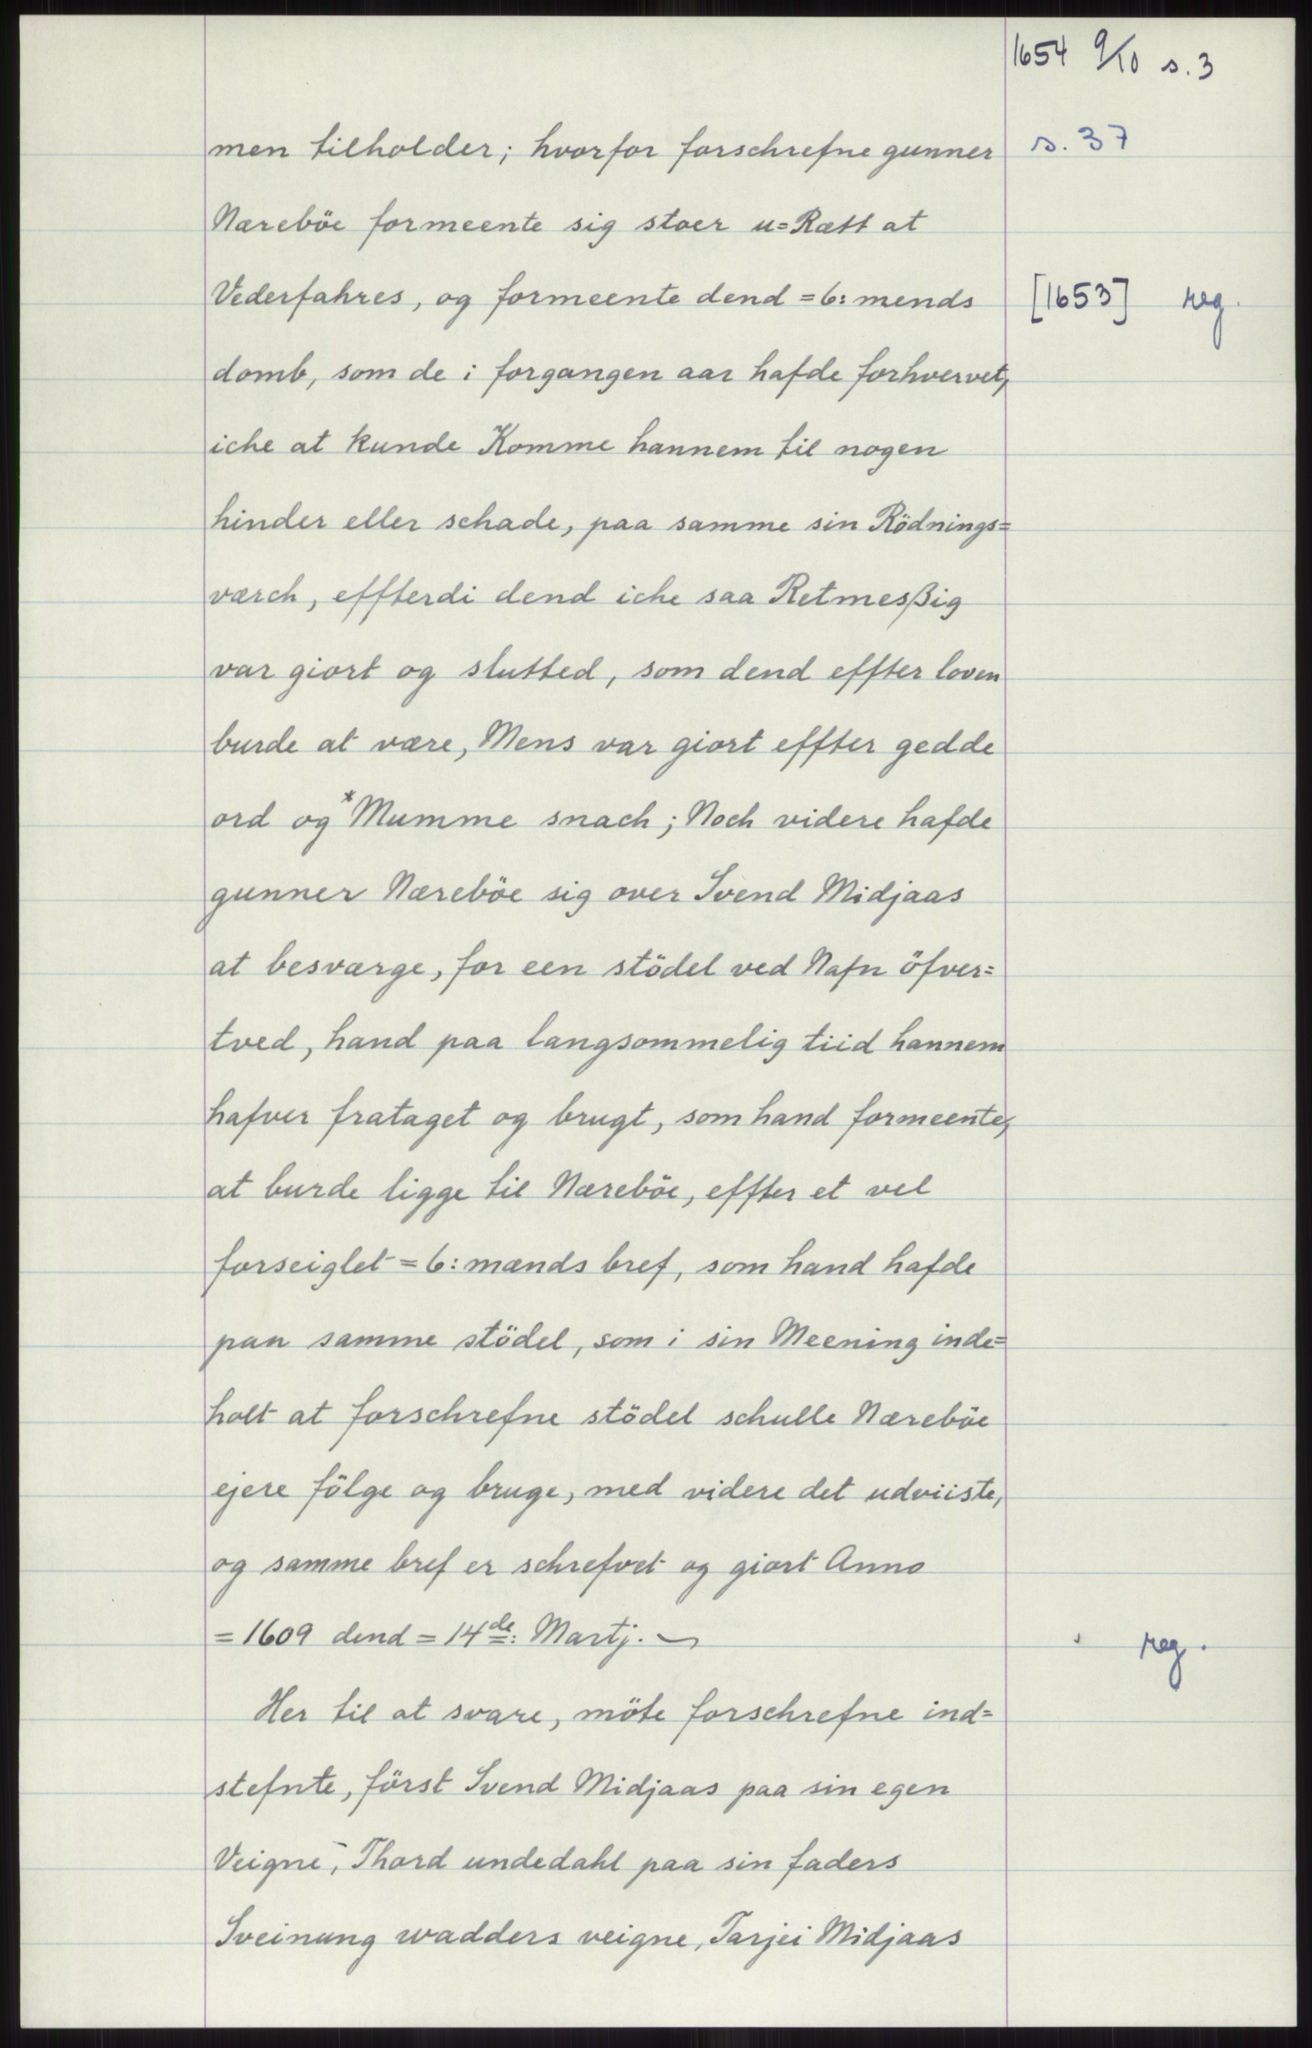 1654 9/10 s. 3
men tilholder; hvorfor forschrefne gunner s. 37
Næreböe formeente sig stoer u=Rætt at
Vederfahres, og formeente dend =6: mends [1653] reg.
domb, som de i forgangen aar hafde forhvervet,
iche at kunde Komme hannem til nogen
hinder eller schade, paa samme sin Rödnings=
værch, effterdi dend iche saa Retmesßig
var giort og slutted, som dend effter loven
burde at være, Mens var giort effter gedde
ord og *Mumme snach; Noch videre hafde
gunner Næreböe sig over Svend Midjaas
at besværge, for een stödel ved Nafn öfver=
tved, hand paa langsommelig tiid hannem
hafver frataget og brugt, som hand formeente,
at burde ligge til Næreböe, effter et vel
forseiglet =6: mænds bref, som hand hafde
paa samme stödel, som i sin Meening inde=
holt at forschrefne stödel schulle Næreböe
ejere fölge og bruge, med videre det udviiste,
og samme bref er schrefvet og giort Anno
=1609 dend =14de: Martj. reg.
Her til at svare, möte forschrefne ind=
stefnte, först Svend Midjaas paa sin egen
Veigne, Thord undedahl paa sin faders
Sveinung wadders veigne, Tarjei Midjaas